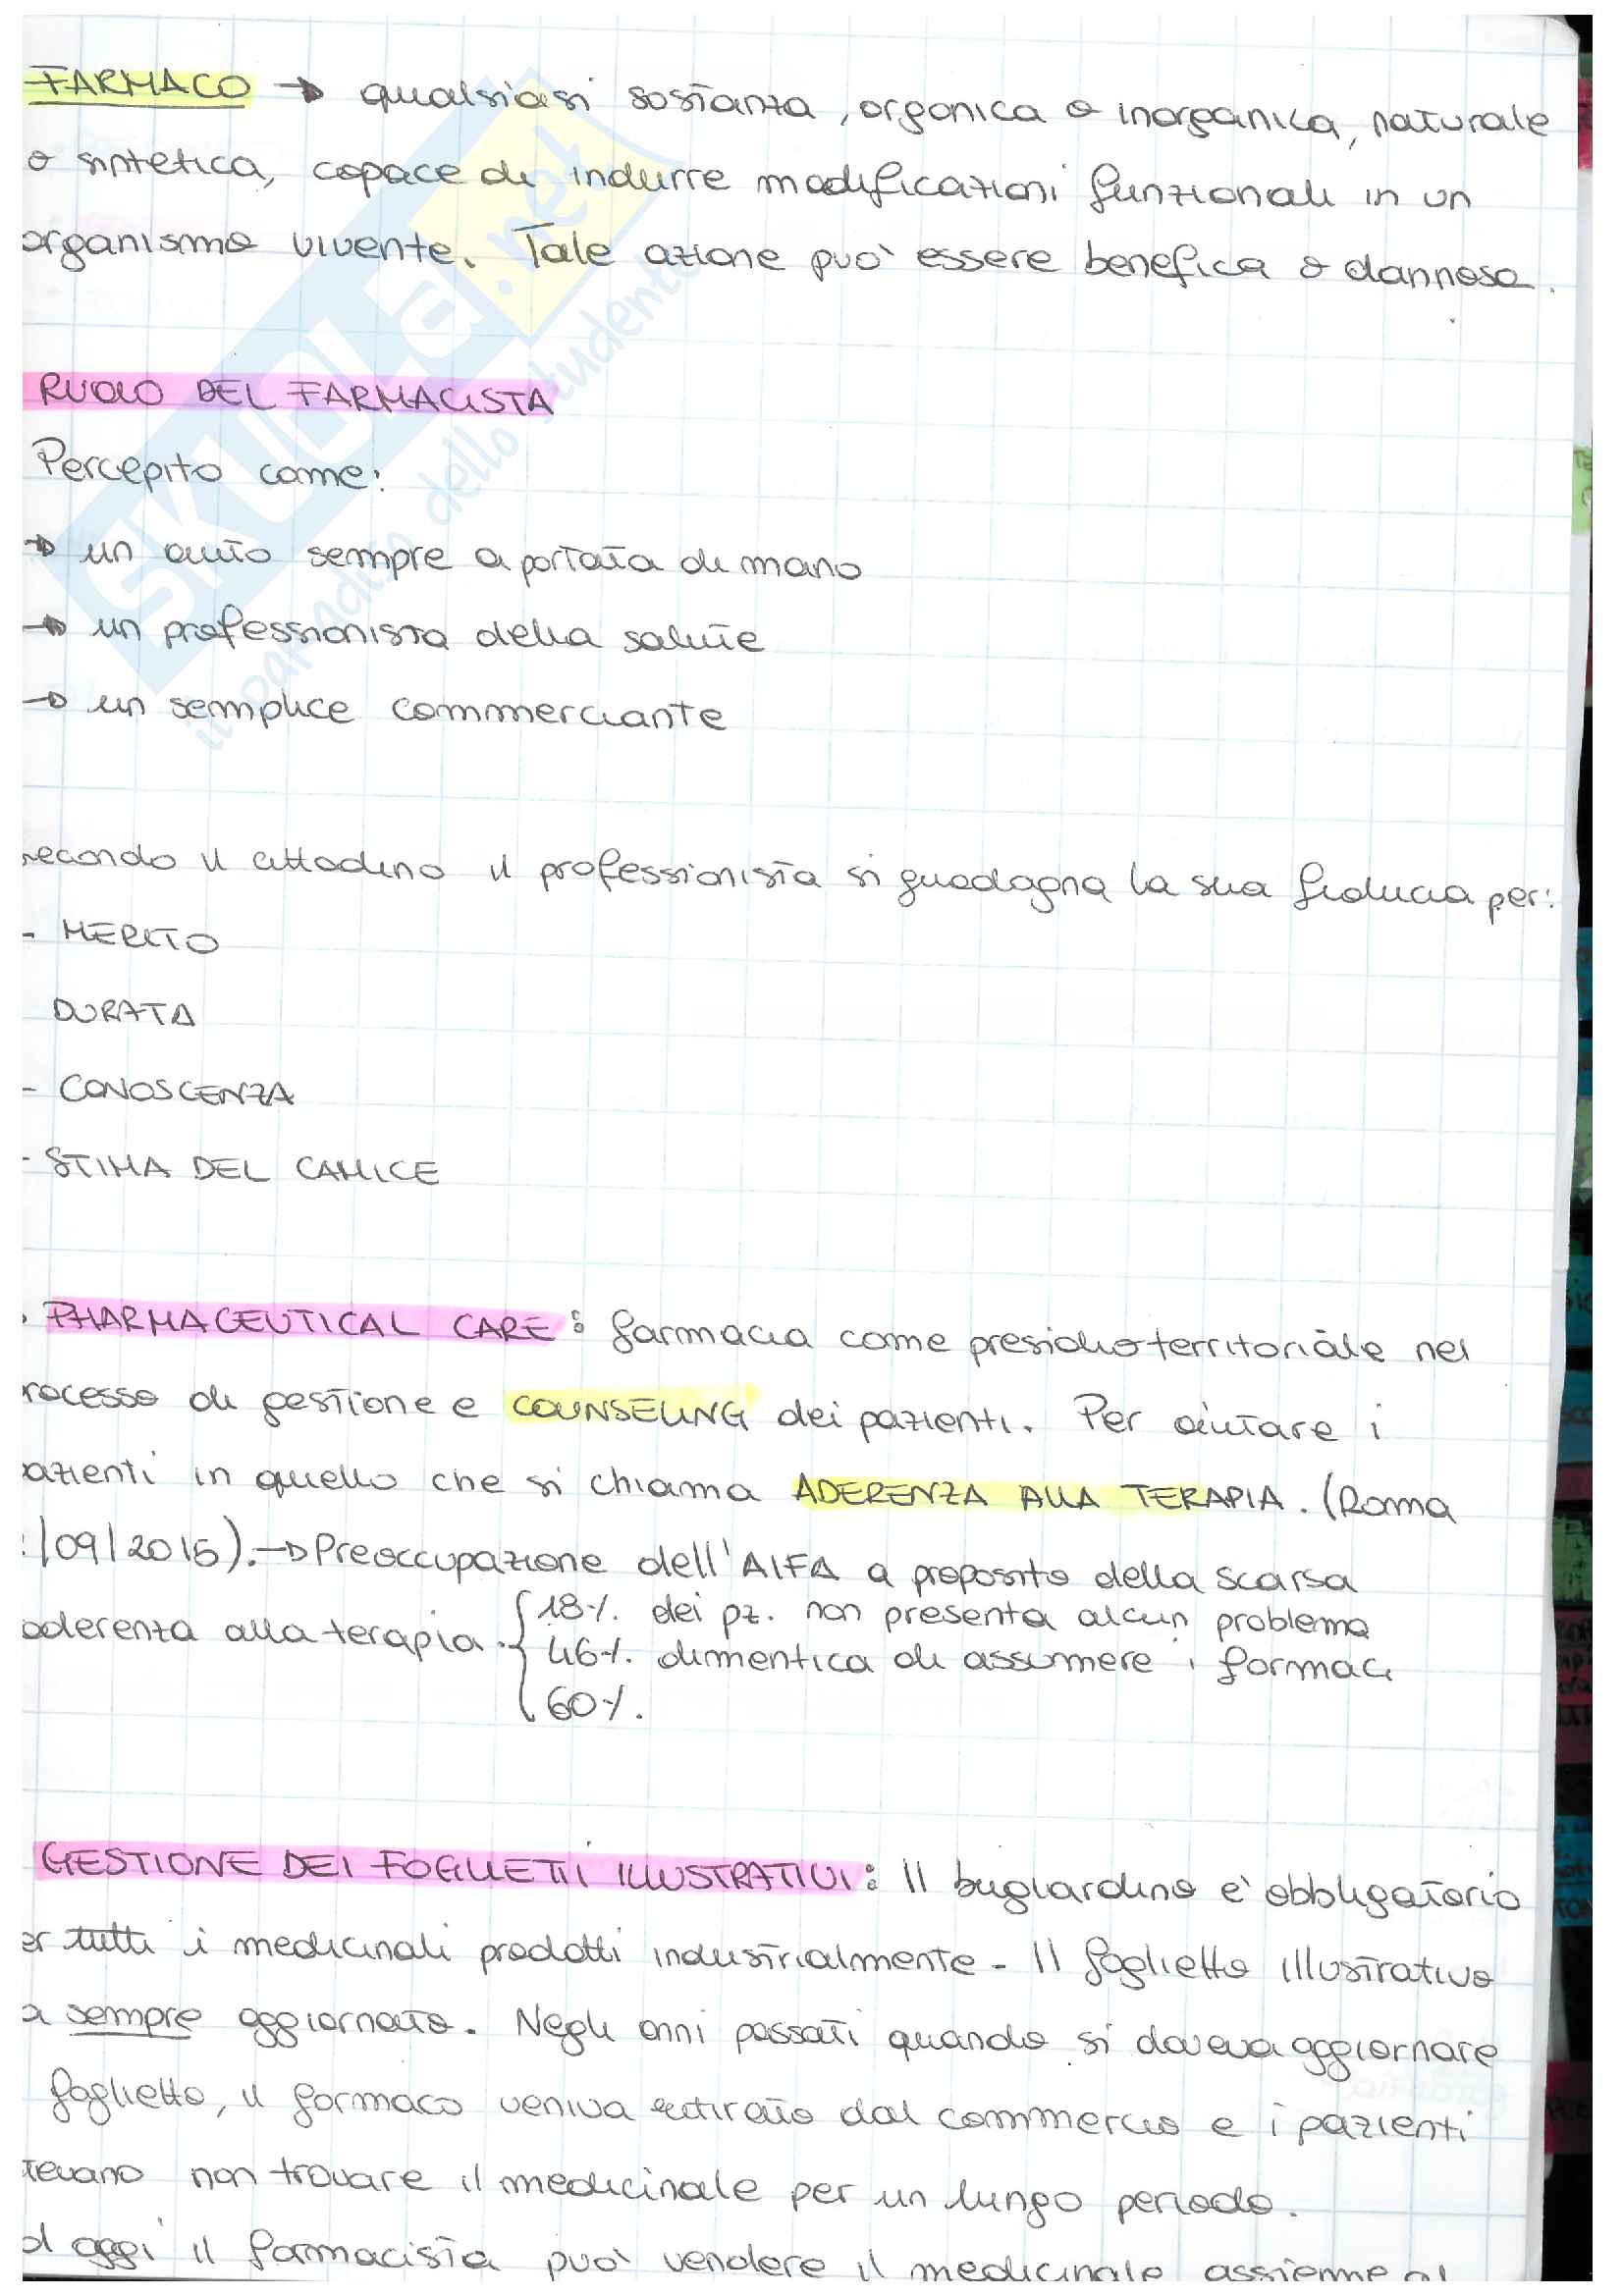 FARMACO → qualsiasi sostanza, organica o inorganica, naturale
o sintetica, capace di indurre modificazioni funzionali in un
organismo vivente. Tale azione può essere benefica o dannosa.
RUOLO DEL FARMACISTA
Percepito come:
→ un aiuto sempre a portata di mano
→ un professionista della salute
→ un semplice commerciante
secondo il cittadino il professionista si guadagna la sua fiducia per:
- MERITO
DURATA
- CONOSCENZA
- STIMA DEL CAMICE
PHARMACEUTICAL CARE: farmacia come presidio territoriale nel
rocesso di gestione e COUNSELING dei pazienti. Per aiutare i
azienti in quello che si chiama ADERENZA ALLA TERAPIA. (Roma
/09/2015). → Preoccupazione dell'AIFA a proposito della scarsa
aderenza alla terapia.
18%. dei pz. non presenta alcun problema
46%. dimentica di assumere i farmaci
60%.
GESTIONE DEI FOGLIETTI ILLUSTRATIVI: Il bugiardino è obbligatorio
er tutti i medicinali prodotti industrialmente. Il foglietto illustrativo
a sempre aggiornato. Negli anni passati quando si doveva aggiornare
foglietto, il farmaco veniva ritirato dal commercio e i pazienti
tevano non trovare il medicinale per un lungo periodo.
d oggi il farmacista può vendere il medicinale assieme al
SKUOLA.net
il paradiso dello studente